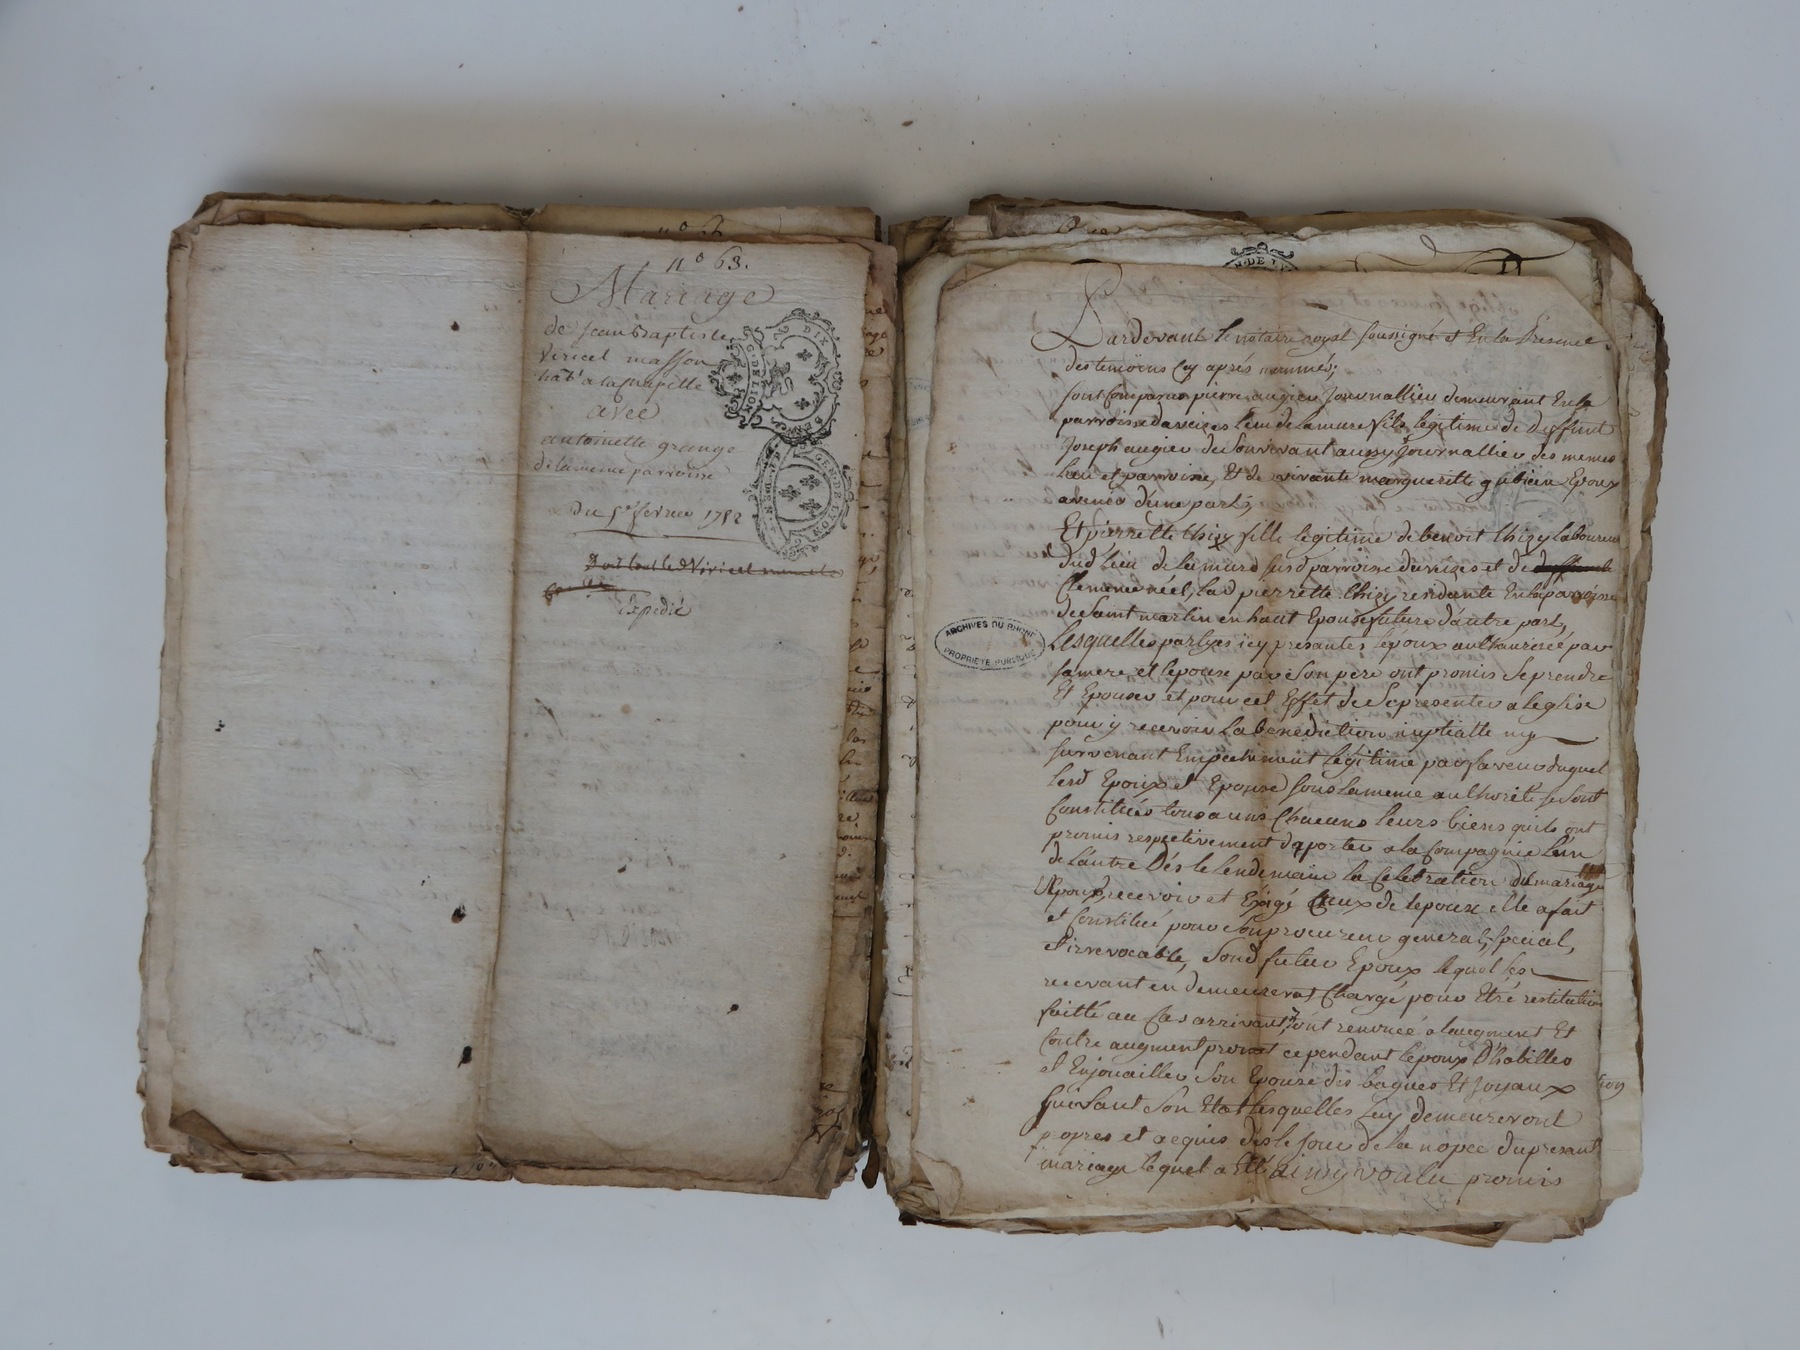 n° 63.
Mariage
de jean Baptiste
Viricel masson
habt a lachapelle
avec
antoinette grange
de la meme parroisse
du 5e fevrier 1782
Expedié
DIX
GEN·DE·LYON
ARCHIVES DU RHONE
PROPRIÉTÉ PUBLIQUE
Pardevant le notaire royal soussigné et En la Presence
des temoins Cy aprés nommés;
sont Comparus pierre augier Journallier demeurant En la
parroisse daveizes lieu de lamure fils légitime de deffunt
Joseph augier de Son vivant aussy Journallier des memes
Lieu et parroisse, Et de vivante margueritte gubien Epoux
avenir d'une part;
Et pierrette thizy fille legitime de benoit thizy laboureur
dud lieu de la mure susd parroisse daveizes et de deffunte
Clemence néel, lad pierrette thizy residante En la parroisse
de Saint martin en haut Epouse future d'autre part,
Lesquelles partyes icy presantes lepoux authaurizé par
sa mere et lepouse par Son pere ont promis Se prendre
Et Epouser et pour cet Effet de Se presenter a leglise
pour y recevoir La bénédiction nuptialle ny
survenant Empechement légitime par faveur duquel
lesd Epoux et Epouse sous la meme authorité se sont
Constitués tous a uns Chacuns leurs biens quils ont
promis respectivement d'aporter a la Compagnie L'un
de L'autre Dés le lendemain la Celebration du mariage
recevoir et Exigé Ceux de lepouse elle a fait
et Constitué pour Son procureur general, special,
et irrevocable, Sond futur Epoux lequel les
recevant en demeurerat Chargé pour Etré restitution
faitte au Cas arrivant, ont renoncé a laugment Et
Contre augment promet cependant lepoux D'habiller
et Enjouailler Son Epouse des bagues Et Joyaux
suivant Son Etat lesquelles Luy demeureront
propres et acquis dés le jour de la nopce du presant
mariage lequel a Eté ainsy voulu promis